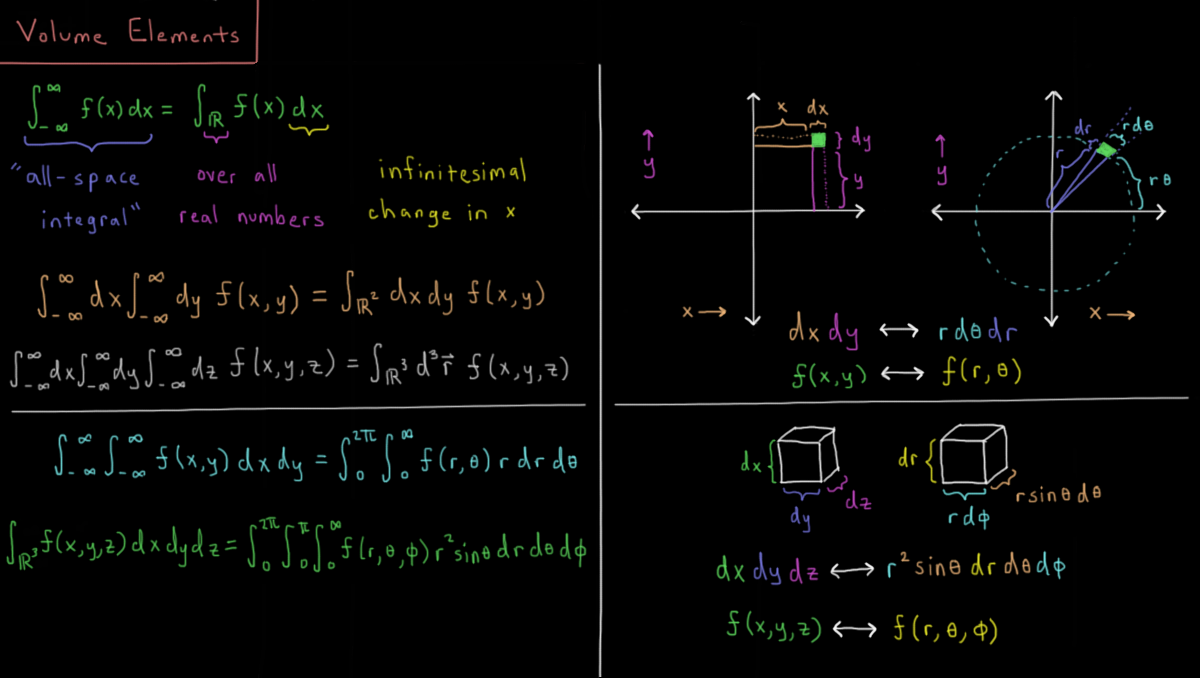 Volume Elements
∫_{-∞}^{∞} f(x) dx = ∫_ℝ f(x) dx
"all-space integral"
over all real numbers
infinitesimal change in x
∫_{-∞}^{∞} dx ∫_{-∞}^{∞} dy f(x,y) = ∫_{ℝ²} dx dy f(x,y)
∫_{-∞}^{∞} dx ∫_{-∞}^{∞} dy ∫_{-∞}^{∞} dz f(x,y,z) = ∫_{ℝ³} d³r⃗ f(x,y,z)
∫_{-∞}^{∞} ∫_{-∞}^{∞} f(x,y) dx dy = ∫_0^{2π} ∫_0^{∞} f(r,θ) r dr dθ
∫_{ℝ³} f(x,y,z) dx dy dz = ∫_0^{2π} ∫_0^{π} ∫_0^{∞} f(r,θ,ϕ) r² sinθ dr dθ dϕ
x dx
dy
y
↑ y
x →
dr rdθ
r
rθ
↑ y
x →
dx dy ↔ r dθ dr
f(x,y) ↔ f(r,θ)
dx
dy
dz
dr
r dϕ
r sinθ dθ
dx dy dz ↔ r² sinθ dr dθ dϕ
f(x,y,z) ↔ f(r,θ,ϕ)